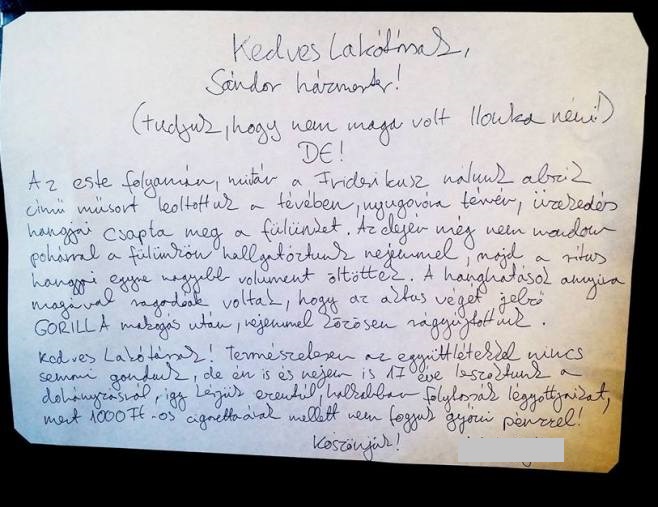 Kedves Lakótársak,
Sándor házmester!
(tudjuk, hogy nem maga volt Ilonka néni!)
DE!
Az este folyamán, miután a Friderikusz nálunk abriz
című műsort leoltottuk a tévében, nyugovóra térvén, üzekedés
hangjai csapta meg a fülünket. Az elején még nem mondom
pohárral a fülünkön hallgatóztunk nejemmel, majd a ritus
hangjai egyre nagyobb volument öltöttek. A hanghatások annyira
magával ragadóak voltak, hogy az aktus végét jelző
GORILLA makogás után, nejemmel közösen rágyújtottunk.
Kedves Lakótársak! Természetesen az együttlétekkel nincs
semmi gondunk, de én is és nejem is 17 éve leszoktunk a
dohányzásról, így kérjük ezentúl, halkabban folytassák légyottjaikat,
mert 1000 Ft-os cigarettaárak mellett nem fogjuk győzni pénzzel!
Köszönjük!